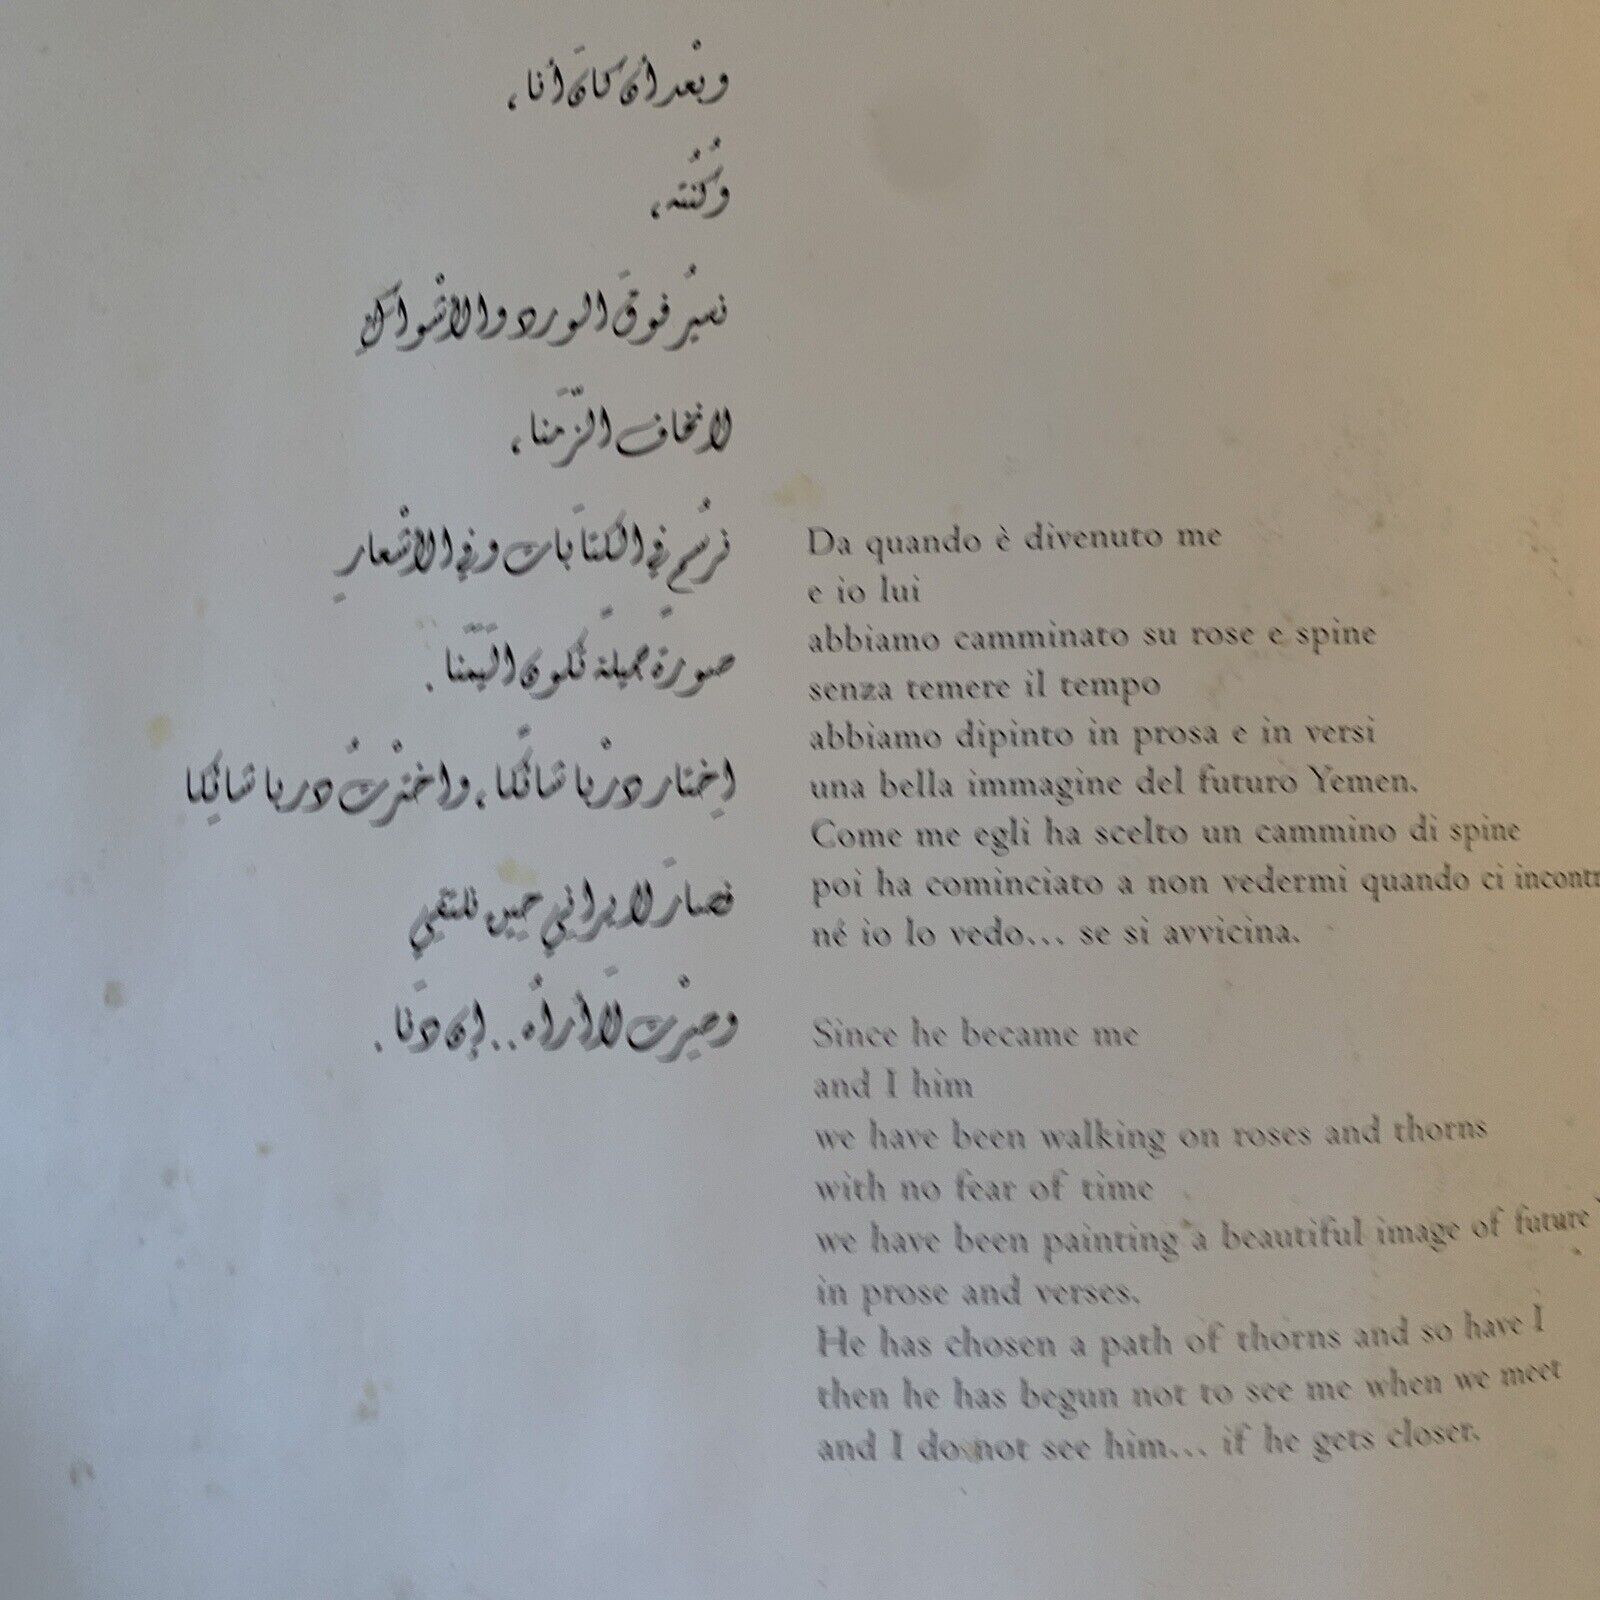 وبعْد أن كانَ أنا،
وُكُنته،
نسيْر فوقَ الورد والأشْواكِ
لا نخاف الزّمَنا،
نرْسُم في الكتابَات وفي الأشْعارِ
صورةً جميلةً تكون اليَمَنا.
اختار درْبا شائكَا، واخترْتُ دربا شائكا
فصارَ لا يراني حين نلتقي
وصِرْت لاَ أراُه.. إن دنَا.
Da quando è divenuto me
e io lui
abbiamo camminato su rose e spine
senza temere il tempo
abbiamo dipinto in prosa e in versi
una bella immagine del futuro Yemen.
Come me egli ha scelto un cammino di spine
poi ha cominciato a non vedermi quando ci incontr
né io lo vedo... se si avvicina.
Since he became me
and I him
we have been walking on roses and thorns
with no fear of time
we have been painting a beautiful image of future
in prose and verses.
He has chosen a path of thorns and so have I
then he has begun not to see me when we meet
and I do not see him... if he gets closer.